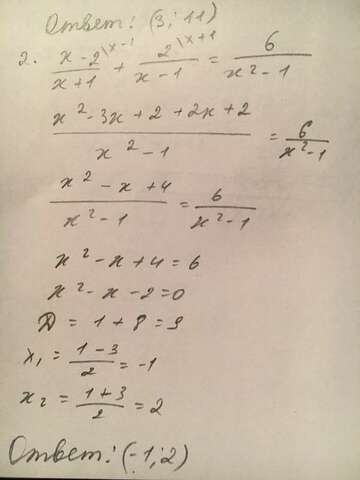 Ответ: (3; 11)
2. x-2\x-1 / x+1 + 2\x+1 / x-1 = 6 / x²-1
x²-3x+2+2x+2 / x²-1 = 6 / x²-1
x²-x+4 / x²-1 = 6 / x²-1
x²-x+4=6
x²-x-2=0
D = 1+8=9
x₁ = 1-3 / 2 = -1
x₂ = 1+3 / 2 = 2
Ответ: (-1; 2)